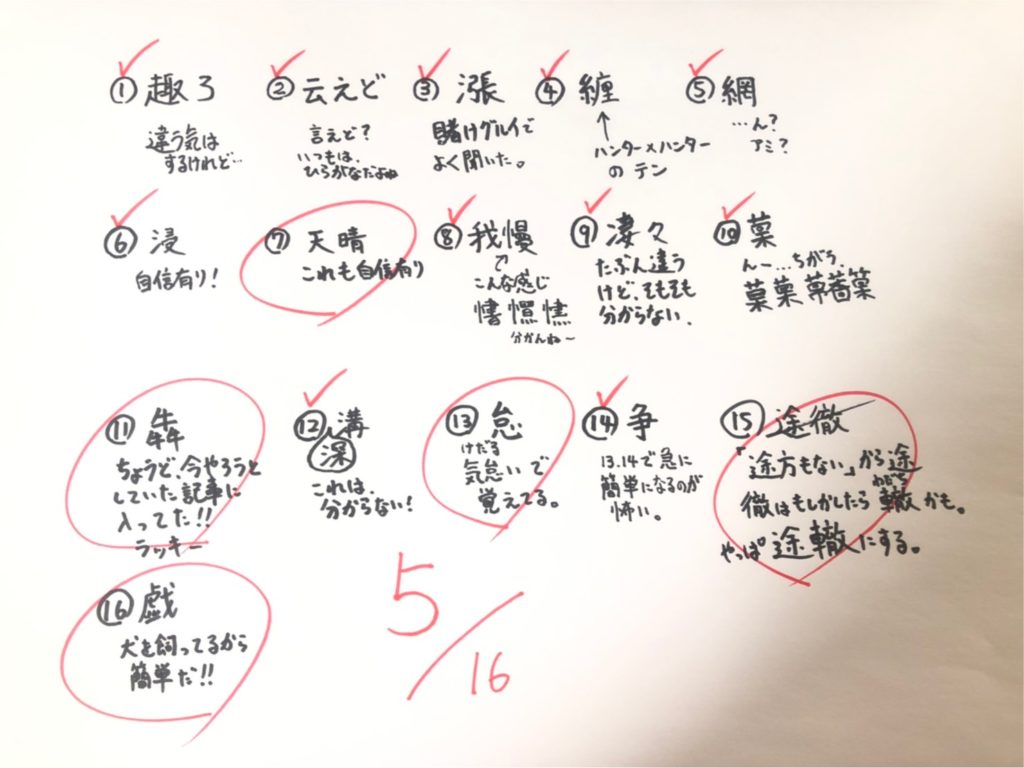 ① 趣ろ
違う気は
するけれど…
② 云えど
言えど？
いつもは、
ひらがなだよね
③ 漲
賭けグルイで
よく聞いた。
④ 纏
↑
ハンター×ハンター
の テン
⑤ 網
…ん？
アミ？
⑥ 浸
自信有り！
⑦ 天晴
これも自信有り
⑧ 我慢
こんな感じ
分かんね〜
⑨ 凄々
たぶん違う
けど、そもそも
分からない、
⑩ 菓
んー…ちがう、
⑪ 犇
ちょうど、今やろうと
していた記事に
入ってた!!
ラッキー
⑫ 溝
深
これは、
分からない！
⑬ 怠
けだる
気怠いで
覚えてる。
⑭ 争
13.14で急に
簡単になるのが
怖い。
⑮ 途徹
「途方もない」から途
わだち
徹はもしかしたら轍かも。
やっぱ途轍にする。
⑯ 戯
犬を飼ってるから
簡単だ!!
5/16